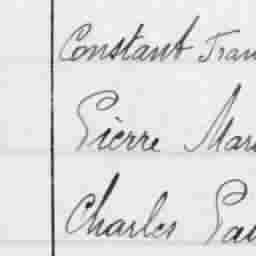 Constant Fran
Pierre Mar
Charles Pau